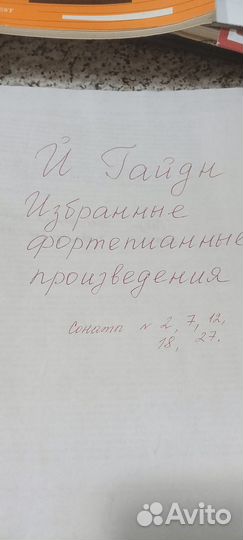 Й Гайдн
Избранные
фортепианные
произведения
Сонаты № 2, 7, 12,
18, 27.
Avito